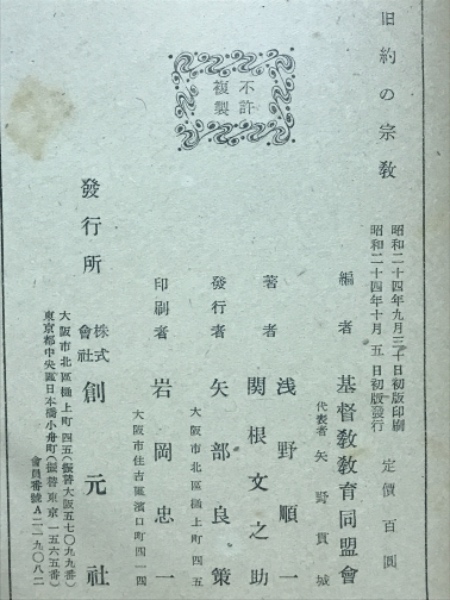 旧約の宗教
不許
複製
昭和二十四年九月三十日初版印刷
昭和二十四年十月五日初版發行
定價百圓
編者 基督敎敎育同盟會
代表者 矢野貫城
著者 浅野順一
関根文之助
發行者 矢部良策
大阪市北區樋上町四五
印刷者 岩岡忠一
大阪市住吉區濱口町四一四
發行所 株式會社 創元社
大阪市北區樋上町四五(振替大阪五七〇九九番)
東京都中央區日本橋小舟町(振替東京一五六五番)
會員番號A二一九〇八二